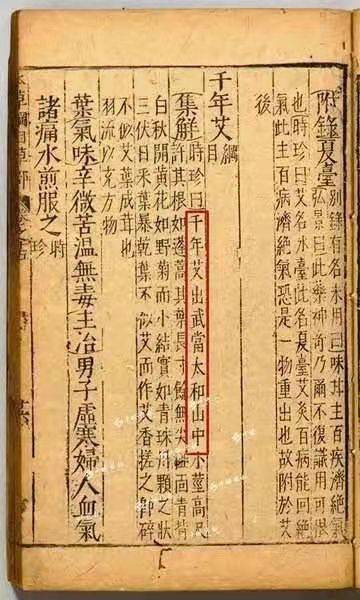 附錄夏臺
別錄有名未用曰味甘主百疾濟絕氣
弘景曰此藥神奇乃爾不復識用可恨
也時珍曰艾名冰臺此名夏臺艾灸百病能回絕
氣此主百病濟絕氣恐是一物重出也故附於艾
後
千年艾
綱目
集解
時珍曰千年艾出武當太和山中小莖高尺
許其根如蓬蒿其葉長寸餘無尖椏面青背
白秋開黃花如野菊而小結實如青珠丹顆之狀
三伏日采葉暴乾葉不似艾而作艾香搓之即碎
不似艾葉成茸也
羽流以充方物
葉氣味辛微苦溫無毒主治男子虛寒婦人血氣
諸痛水煎服之
時珍
草綱目草部